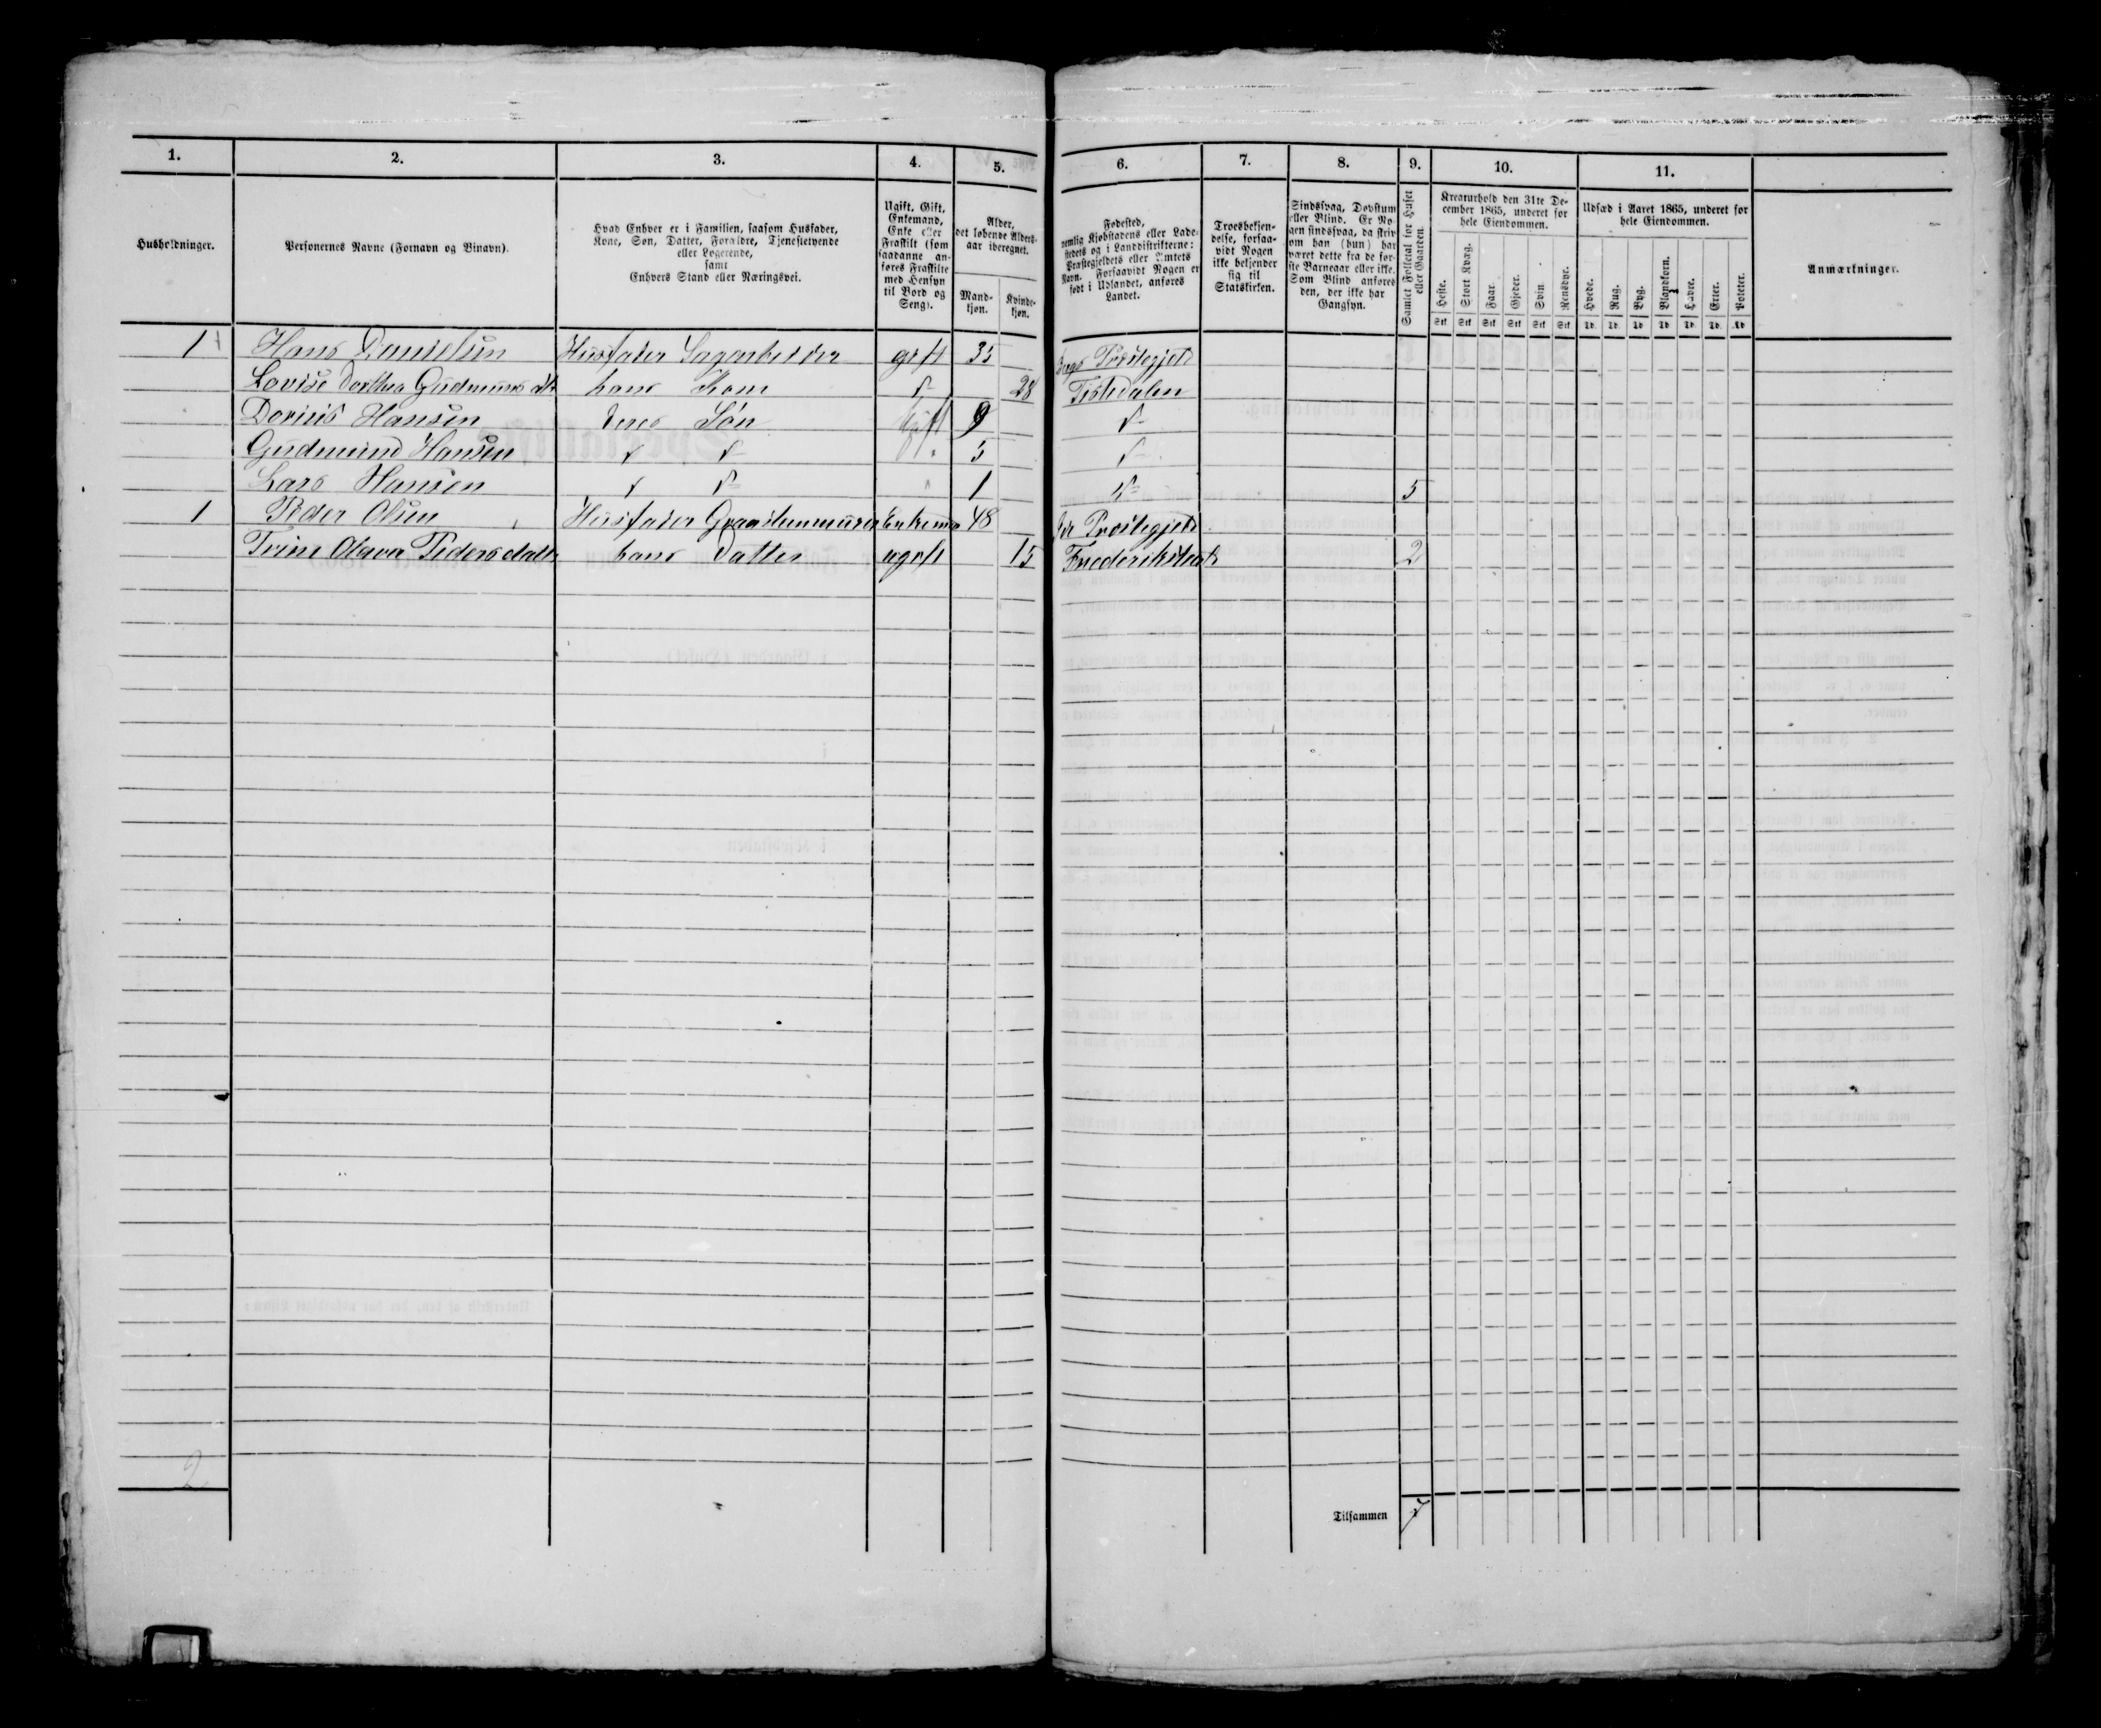 1. 2. 3. 4. 5. 6. 7. 8. 9. 10. 11.
Husholdninger.
Personernes Navne (Fornavn og Binavn).
Hvad Enhver er i Familien, saasom Husfader,
Kone, Søn, Datter, Forældre, Tjenestetyende
eller Logerende,
samt
Enhvers Stand eller Næringsvei.
Ugift, Gift,
Enkemand,
Enke eller
Fraskilt (som
saadanne an-
føres Fraskilte
med Hensyn
til Bord og
Seng).
Alder,
det løbende Alders-
aar iberegnet.
Mand-
kjøn.
Kvinde-
kjøn.
Fødested,
nemlig Kjøbstadens eller Lade-
stedets og i Landdistrikterne:
Præstegjeldets eller Amtets
Navn. Forsaavidt Nogen er
født i Udlandet, anføres
Landet.
Troesbekjen-
delse, forsaa-
vidt Nogen
ikke bekjender
sig til
Statskirken.
Sindssvag, Døvstum
eller Blind. Er No-
gen sindssvag, da skriv
om han (hun) har
været dette fra de før-
ste Barneaar eller ikke.
Som Blind anføres
den, der ikke har
Gangsyn.
Samlet Folketal for Huset
eller Gaarden.
Kreaturhold den 31te De-
cember 1865, underet for
hele Eiendommen.
Heste. Stort Kvæg. Faar. Gjeder. Svin. Rensdyr.
Stk Stk Stk Stk Stk Stk
Udsæd i Aaret 1865, underet for
hele Eiendommen.
Hvede. Rug. Byg. Blandkorn. Havre. Erter. Poteter.
Td. Td. Td Td Td. Td. Td
Anmærkninger.
1 Hans Danielsen Husfader Sagarbeider gift 35 Præstegjeld
Lovise Dorthea Gudmunds dtr hans Kone 28 Tistedalen
Dorius Hansen deres Søn Ugift 9
Gudmund Hansen 5
Lars Hansen 1 5
1 Peder Olsen Husfader Graastenmurer Enkema 48 Præstegjeld
Trine Olava Peders datter hans Datter ugift 15 Frederikstad 2
2
Tilsammen 7